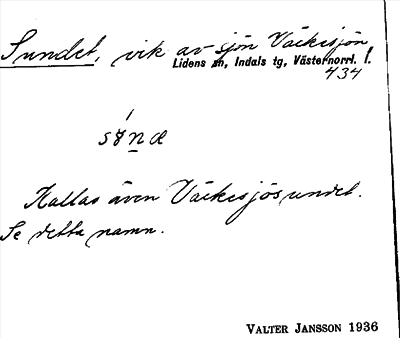 Sundet, vik av sjön Väckesjön,
Lidens sn, Indals tg, Västernorrl. l.
434
Kallas även Väckesjösundet.
Se detta namn.
VALTER JANSSON 1936